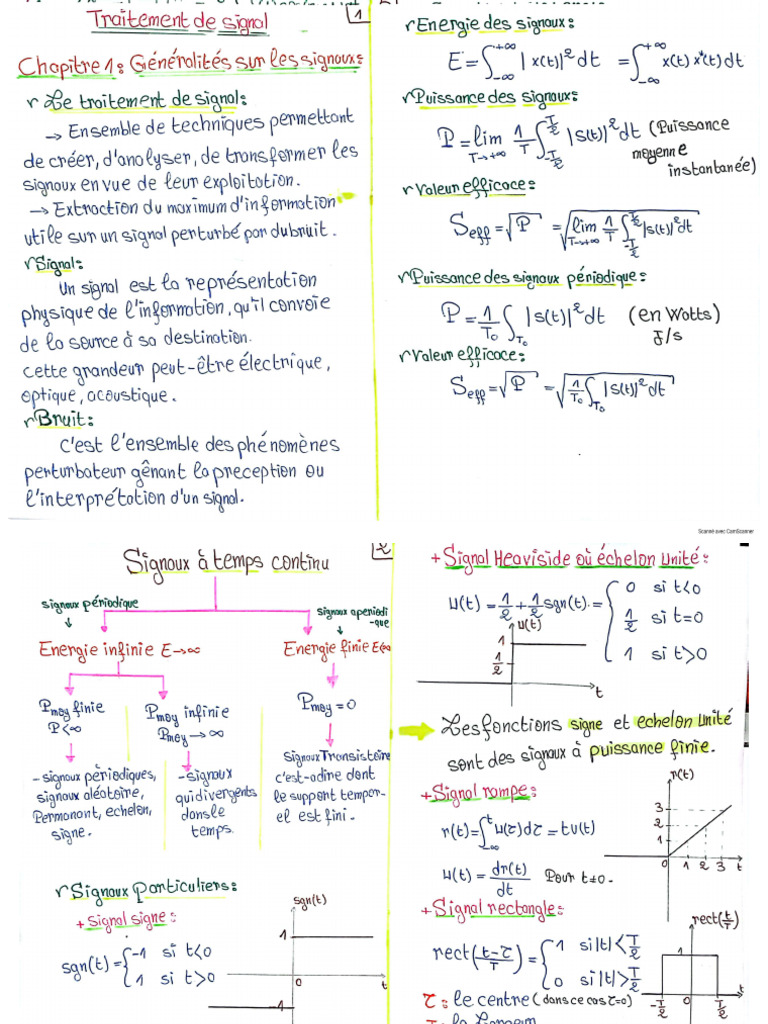 Traitement de signal
1
Chapitre 1: Généralités sur les signaux:
r Le traitement de signal:
→ Ensemble de techniques permettant
de créer, d'analyser, de transformer les
signaux en vue de leur exploitation.
→ Extraction du maximum d'information
utile sur un signal perturbé par du bruit.
r Signal:
Un signal est la représentation
physique de l'information, qu'il convoie
de la source à sa destination.
cette grandeur peut-être électrique,
optique, acoustique.
r Bruit:
C'est l'ensemble des phénomènes
perturbateur gênant la preception ou
l'interprétation d'un signal.
r Energie des signaux:
E = ∫_{-∞}^{+∞} |x(t)|² dt = ∫_{-∞}^{+∞} x(t) x*(t) dt
r Puissance des signaux:
P = lim_{T→+∞} 1/T ∫_{-T/2}^{T/2} |s(t)|² dt (Puissance
moyenne
instantanée)
r Valeur efficace:
S_eff = √P = √(lim_{T→+∞} 1/T ∫_{-T/2}^{T/2} |s(t)|² dt)
r Puissance des signaux périodique:
P = 1/T₀ ∫_{T₀} |s(t)|² dt (en Watts)
J/s
r Valeur efficace:
S_eff = √P = √(1/T₀ ∫_{T₀} |s(t)|² dt)
Scanné avec CamScanner
2
Signaux à temps continu
signaux périodique
signaux aperiodi
-que
Energie infinie E→∞
Energie finie E<∞
P_moy finie
P<∞
P_moy infinie
P_moy → ∞
P_moy = 0
- signaux périodiques,
signaux aléatoire,
Permanant, echelon,
signe.
- signaux
qui divergents
dans le
temps.
Signaux Transistoire
c'est-adire dont
le support tempor-
el est fini.
r Signaux Particuliers:
+ Signal signe:
sgn(t) = { -1 si t<0
1 si t>0
sgn(t)
1
0
t
-1
+ Signal Heaviside où échelon Unité:
u(t) = 1/2 + 1/2 sgn(t) = { 0 si t<0
1/2 si t=0
1 si t>0
u(t)
1
1/2
t
Les fonctions signe et echelon Unité
sont des signaux à puissance finie.
+ Signal rampe:
r(t) = ∫_{-∞}^{t} u(τ)dτ = tu(t)
u(t) = dr(t)/dt Pour t≠0.
r(t)
3
2
1
0
1 2 3 t
+ Signal rectangle:
rect((t-τ)/T) = { 1 si |t| < T/2
0 si |t| > T/2
rect(t/T)
1
-T/2
0
T/2
t
τ: le centre (dans ce cas τ=0)